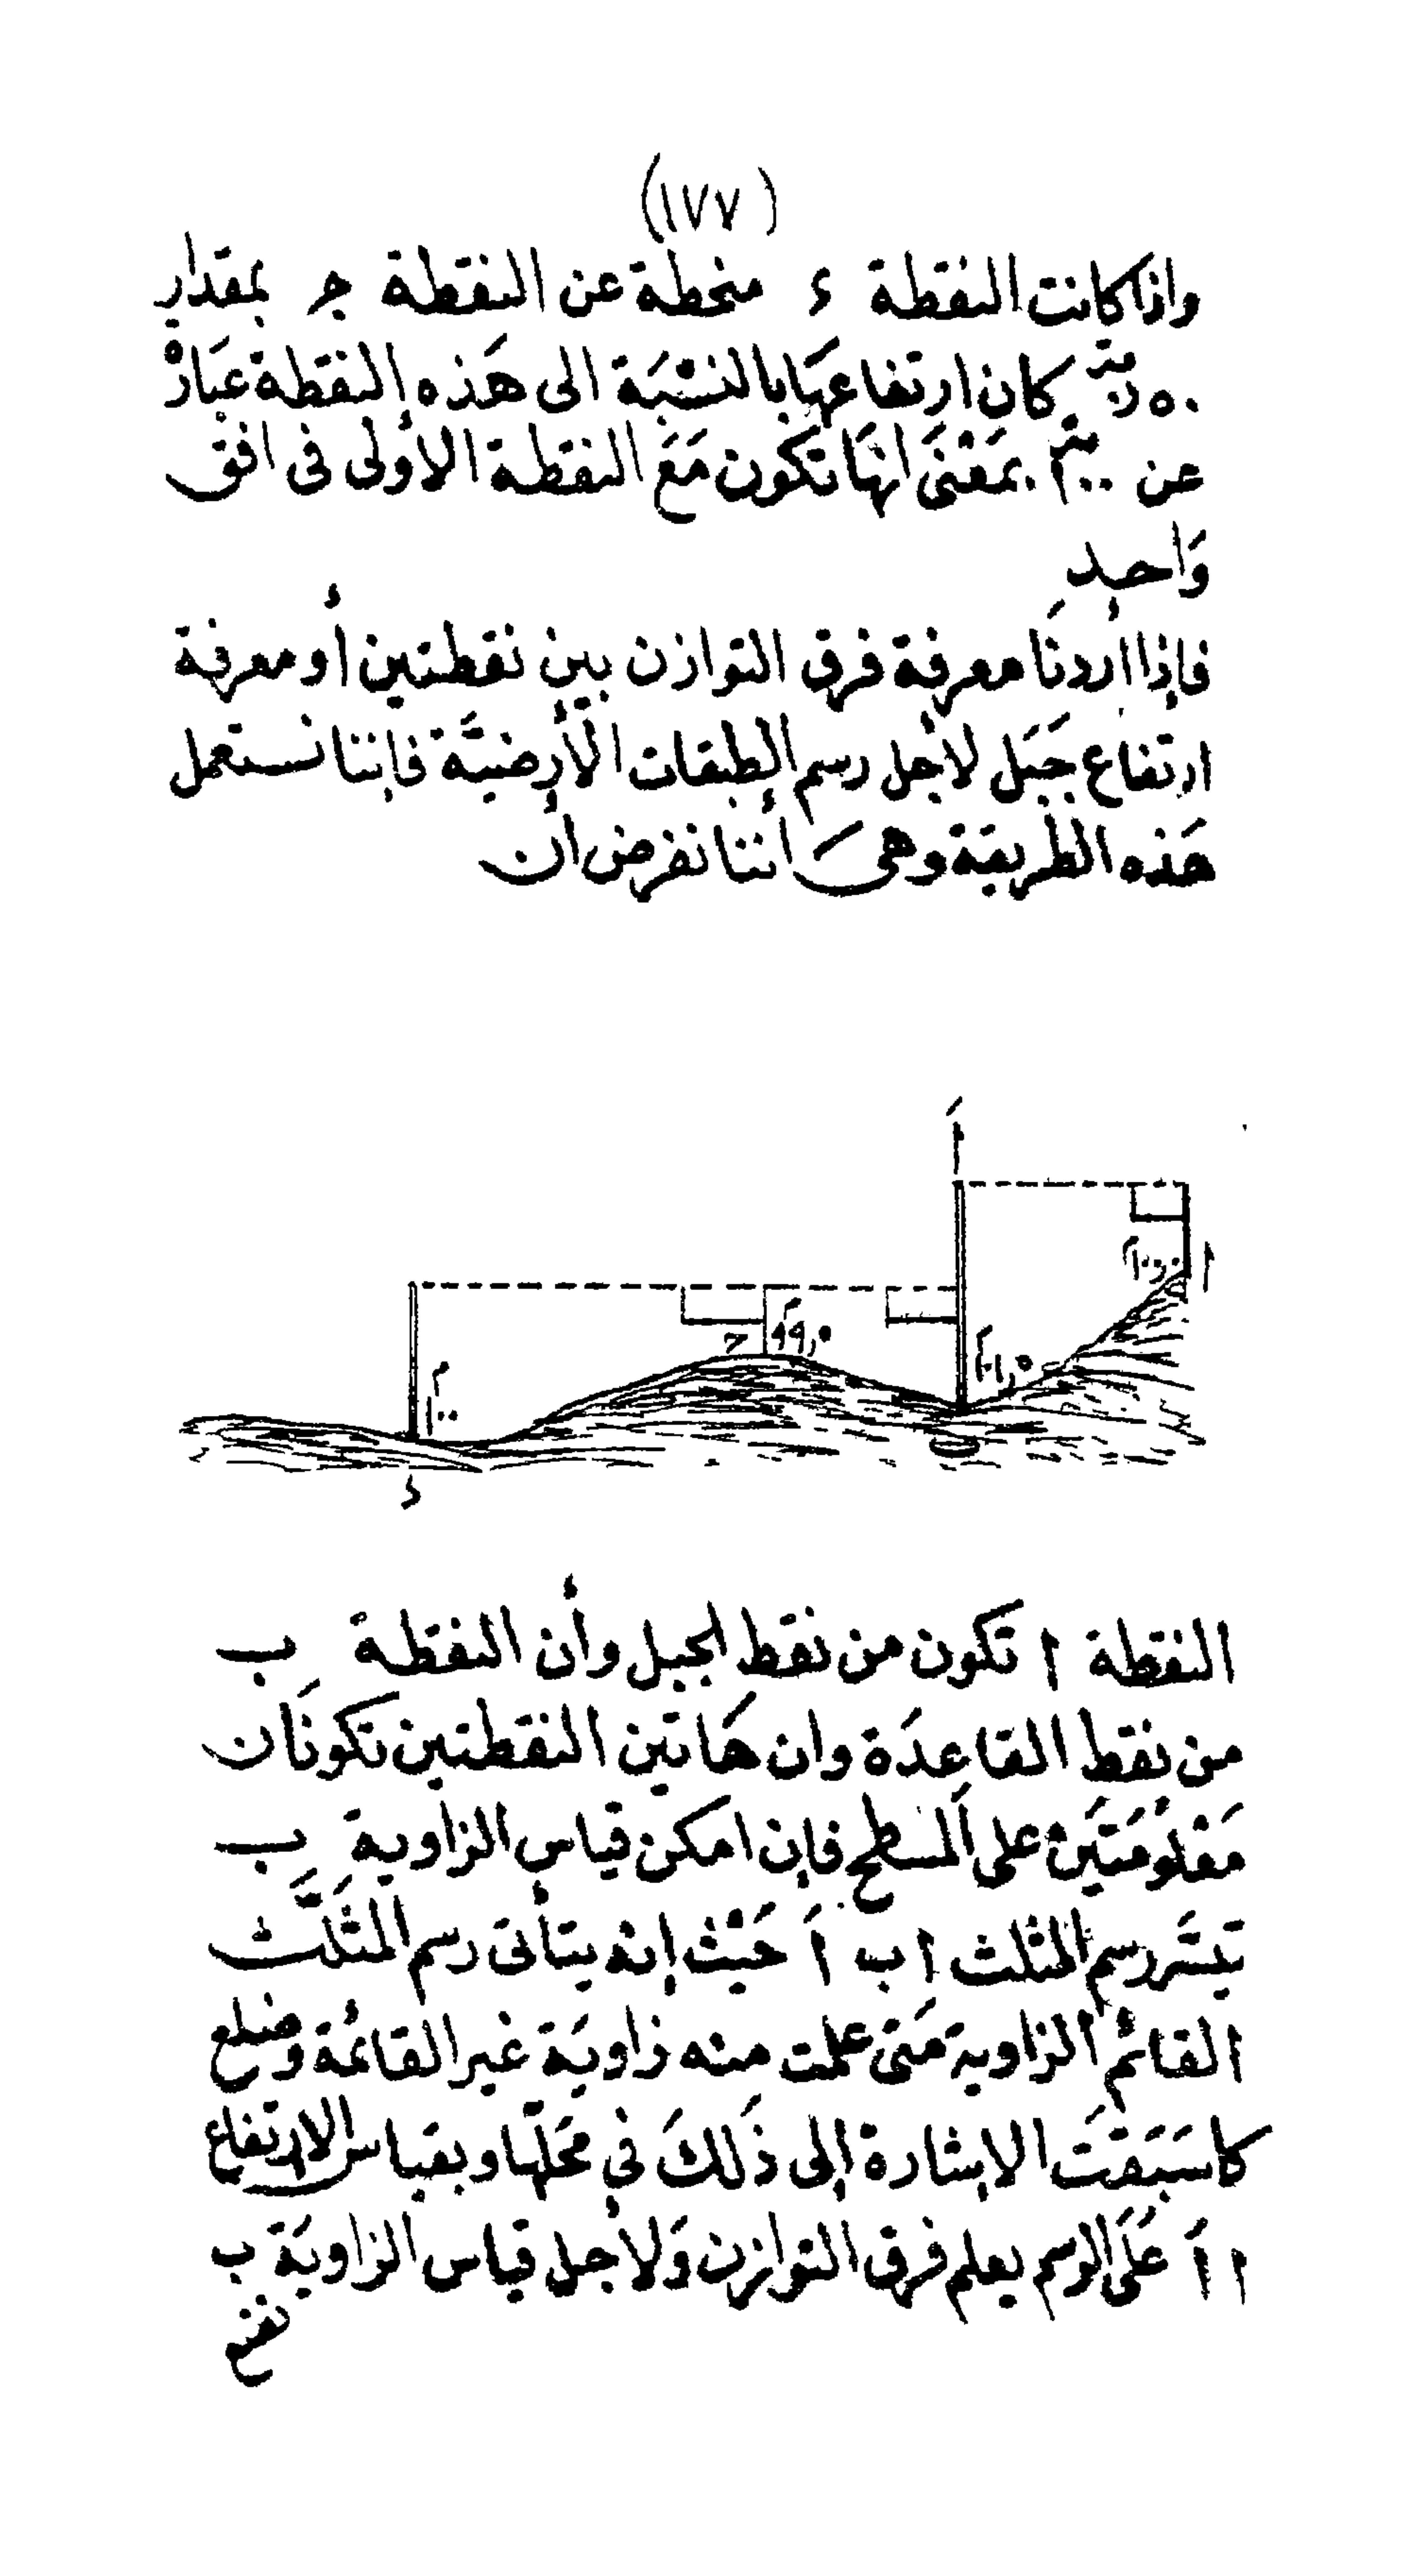 (١٧٧)
واذا كانت النقطة ء منحطة عن النقطة جـ بمقدار
٥٠ر٠ متر كان ارتفاعهَا بالنسْبَة الى هَذه النقطة عبَارة
عن ١٠٠ متر بمَعْنىَ انهَا تكون مَعَ النقطة الأولى فى افق
وَاحد
فإذا أردنَا معرفة فرق التوازن بين نقطتين أو معرفة
ارتفاع جَبَل لأجل رسم الطبقات الأرضيَّة فإننا نستعمل
هَذه الطريقة وهىَ أننا نفرض أن
أَ
١٠٠,٠م
أ
ج
٩٩,٥م
١٠١,٥م
١٠٠م
ء
النقطة أ تكون من نقط الجبل وأن النقطة ب
من نقط القاعدَة وان هَاتين النقطتين تكونَان
مَعْلومَتَين على المسطح فإن امكن قياس الزاوية ب
تيسَّر رسم المثلث أ ب أَ حَيْث إنه يتأتى رسم المثَلَّث
القائم الزاوية مَتى علمت منه زاويَة غير القائمة وضلع
كما سَبَقَت الإشارة إلى ذَلكَ فى مَحَلّها وبقياس الارتفاع
أ أَ عَلَى الرسم يعلم فرق التوازن وَلأجل قياس الزاويَة ب